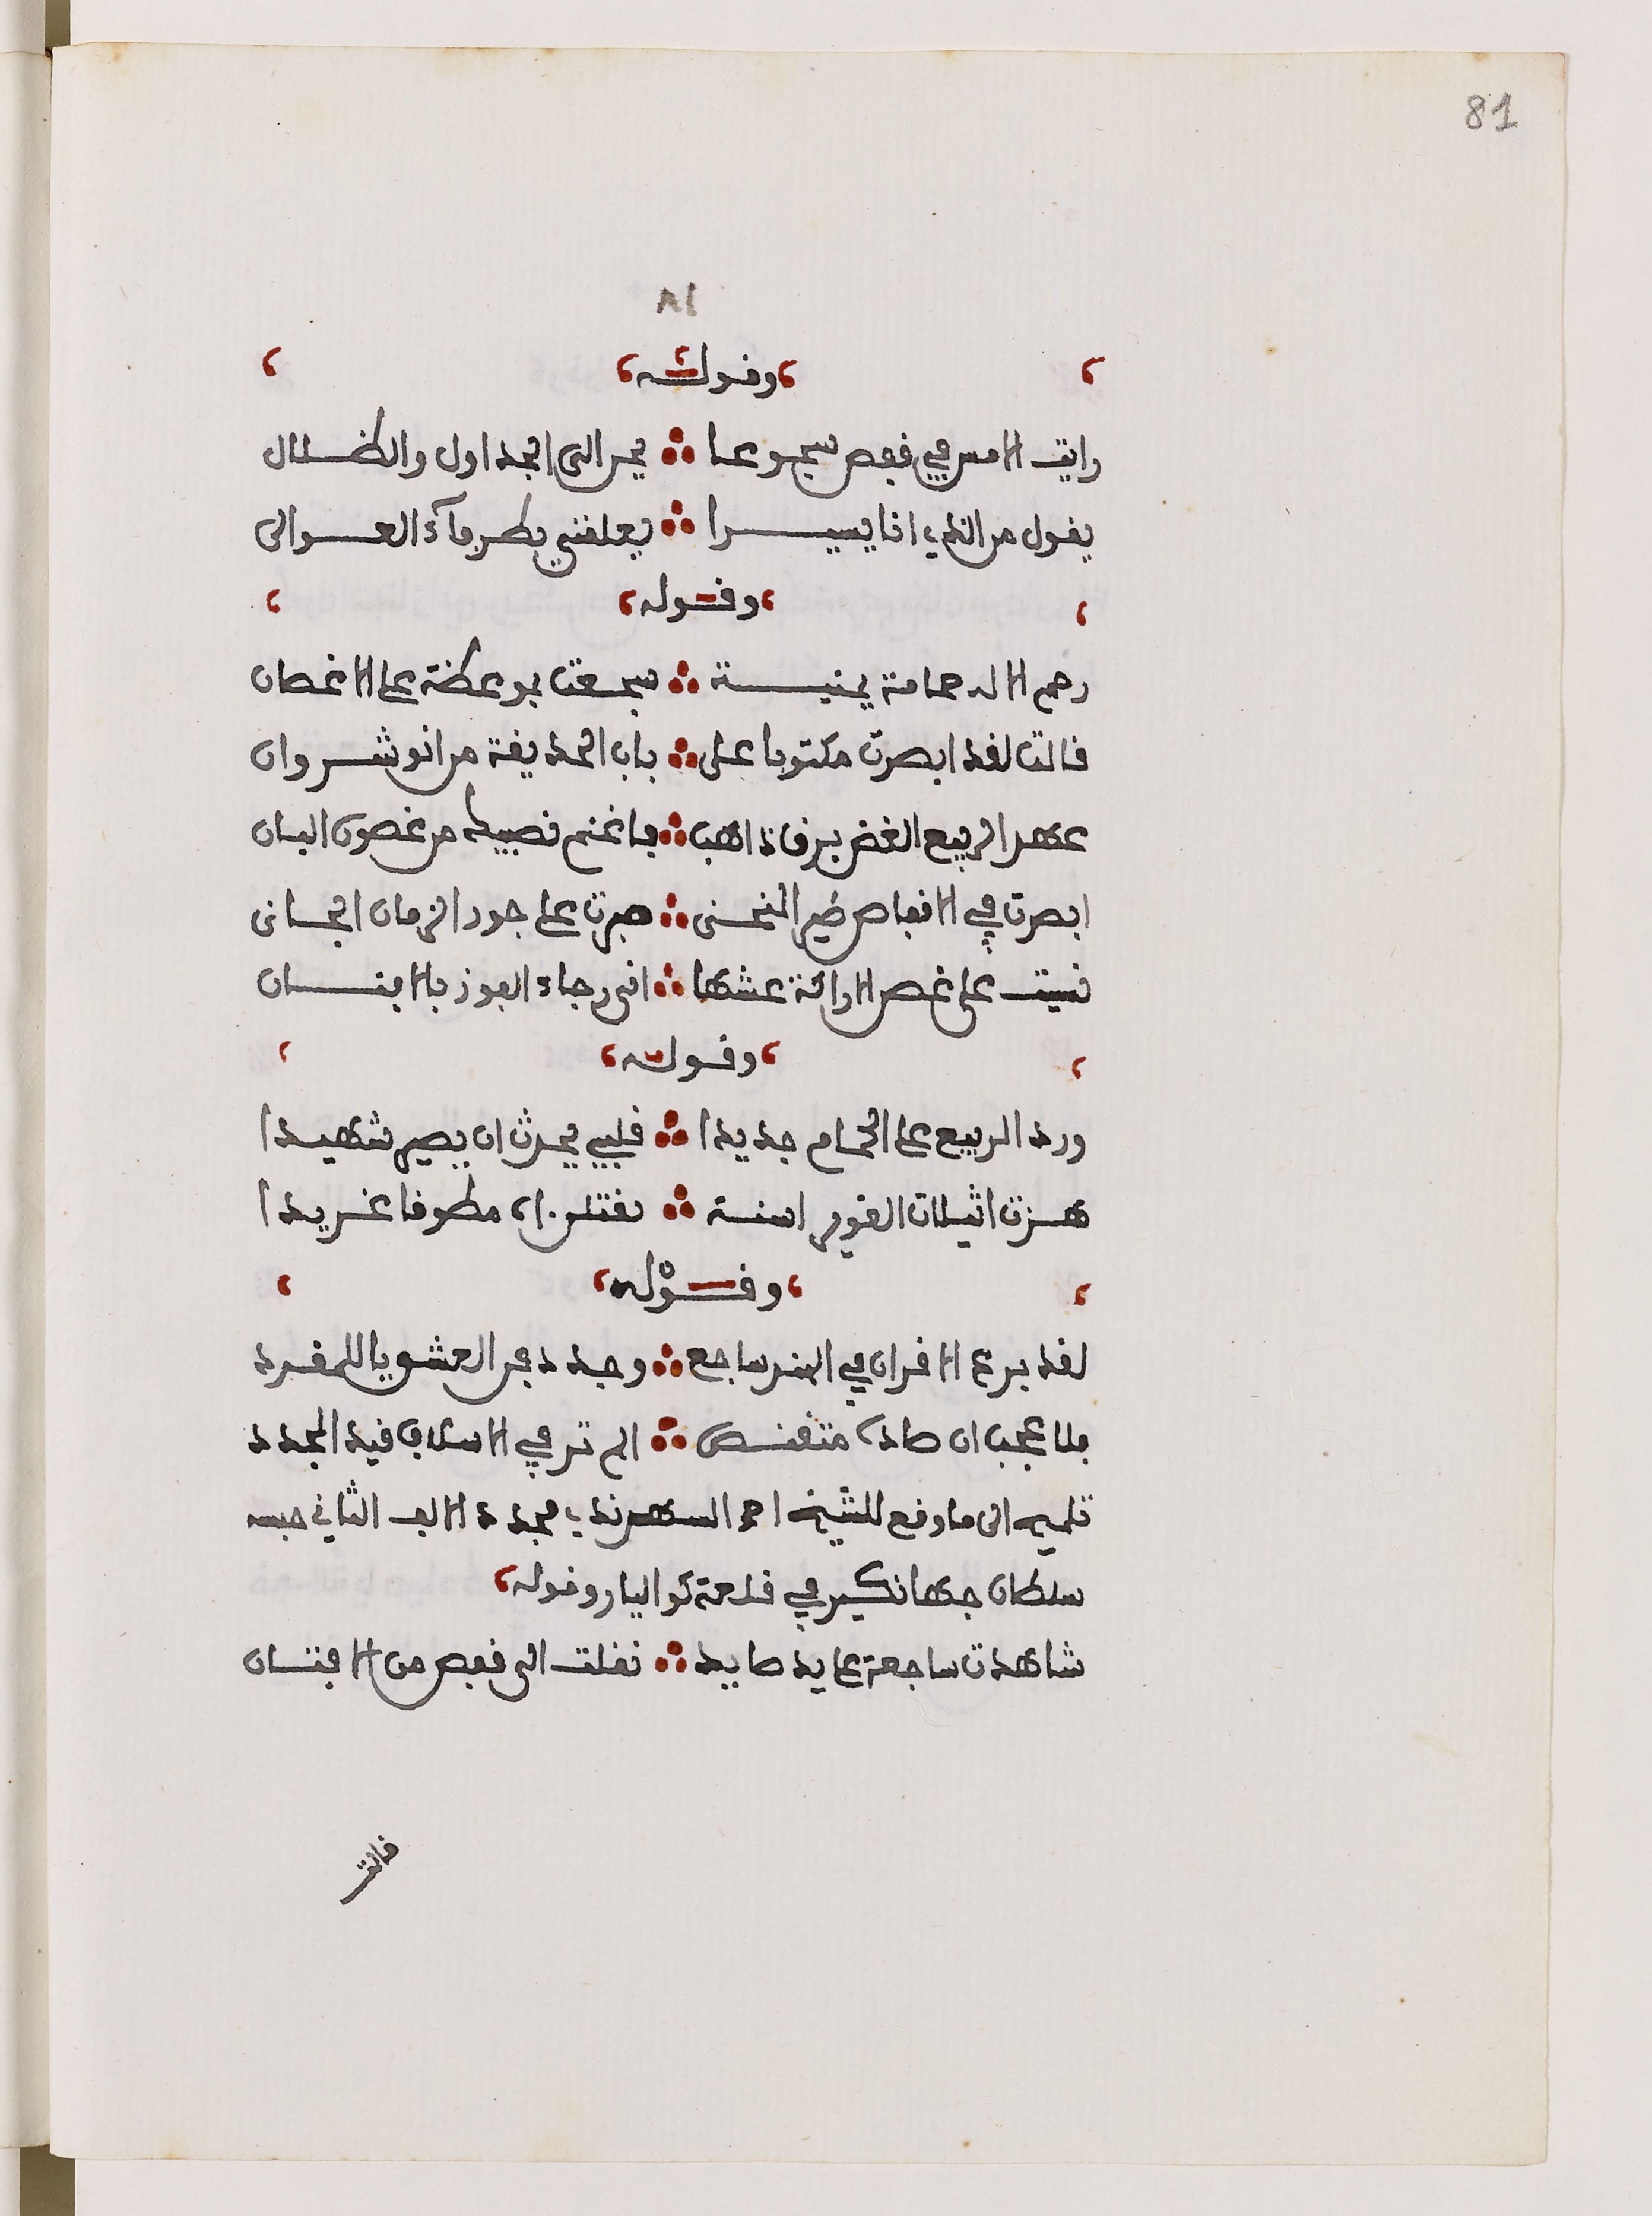 81
٨١
وقوله
رايت الامس في قفص سجوعا ؞ يحن الى الجداول والظلال
يقول من الذي انا يسيرا ؞ يعلقني بطرفاء العوالى
وقوله
رحم الاله حمامة يمنيـة ؞ سجعت بموعظة على الاغصان
قالت لقد ابصرت مكتوبا على ؞ باب الحديقة من انوشروان
عهد الربيع الغض برق ذاهب ؞ فاغنم نصيبك من غصون البان
ابصرت في الاقفاص طير المنحنى ؞ صبرت على جور الزمان الجانى
نسيت على غصن الاراكة عشها ؞ انى رجاء الفوز بالافنان
وقوله
ورد الربيع على الحمام جديدا ؞ قلبي يحدث ان يصير شهيدا
هزت اثيلات الغوير اسنة ؞ مطوقا غريدا
وقوله
لقد برع الاقران في الهند ساجع ؞ وجدد فن العشق يا للمغرد
فلا عجب ان صاده متقنص ؞ الم تر في الاسلاف قيد المجدد
تلميح الى ما وقع للشيخ احمد السهرندي مجدد الالف الثاني حبسه
سلطان جهانكير في قلعة كواليار وقوله
شاهدت ساجعة على يد صايد ؞ نقلت الى قفص من الافنان